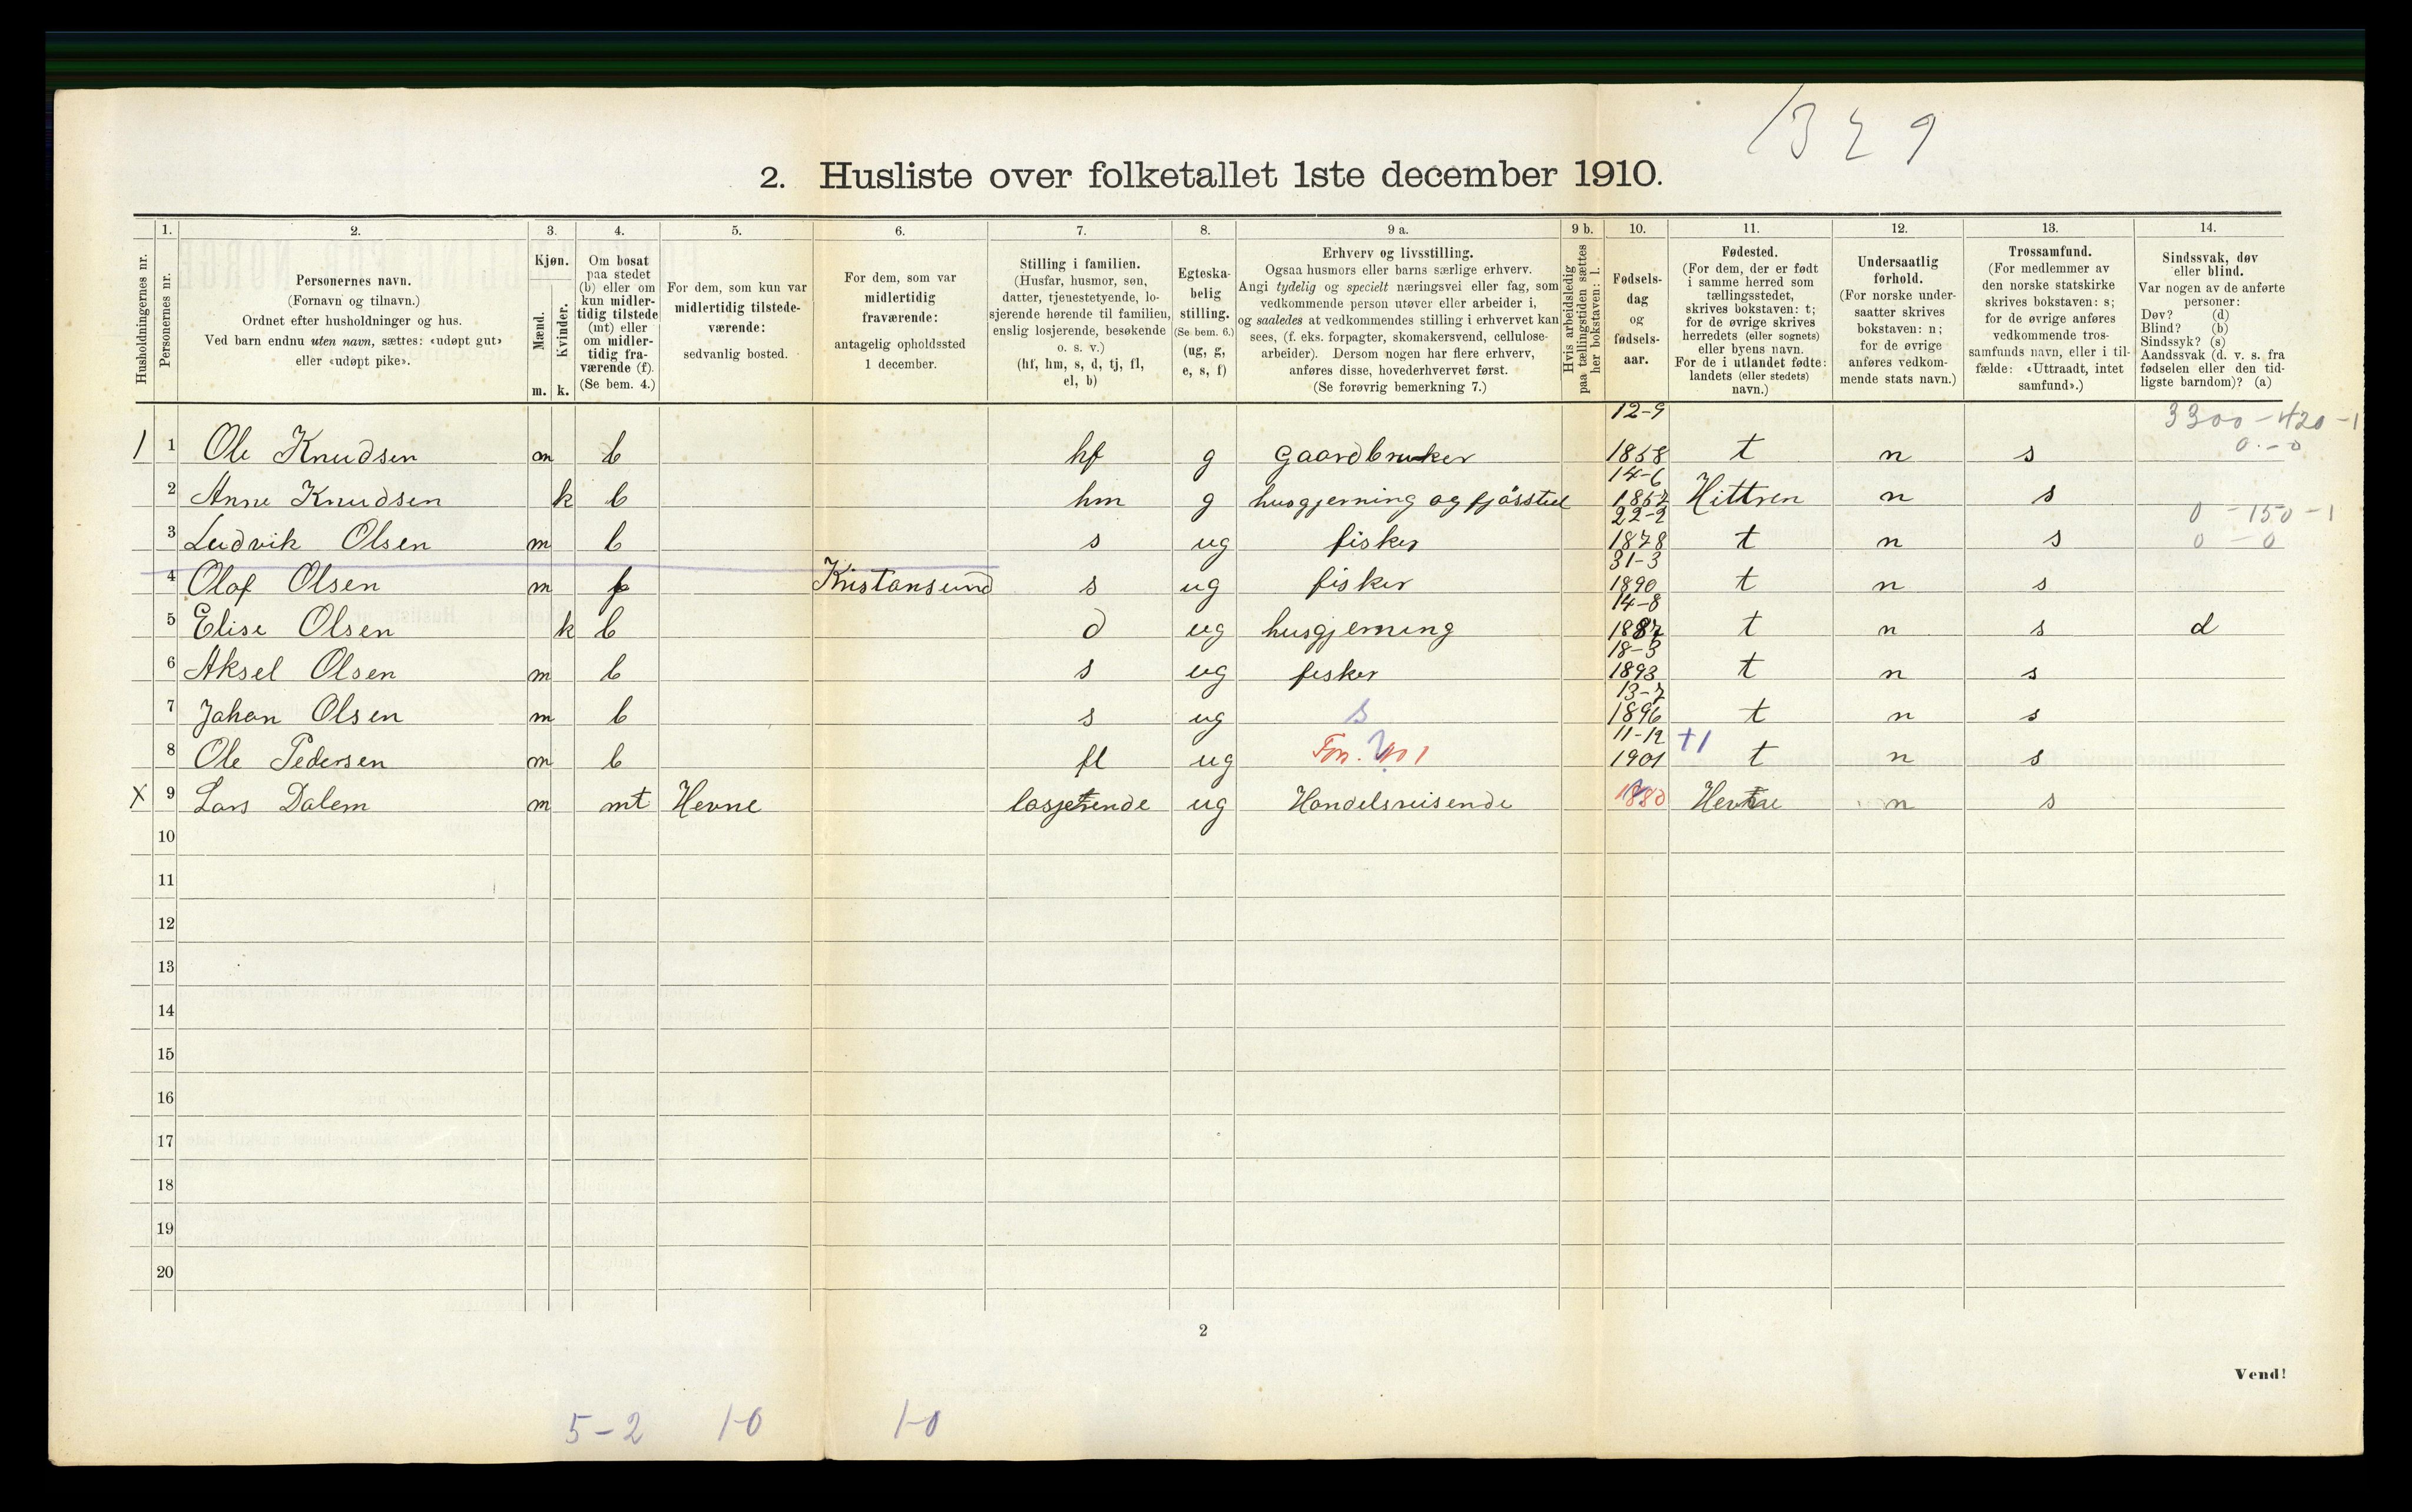 1329
2. Husliste over folketallet 1ste december 1910.
Husholdningernes nr.
1. Personernes nr.
2. Personernes navn. (Fornavn og tilnavn.) Ordnet efter husholdninger og hus. Ved barn endnu uten navn, sættes: «udøpt gut» eller «udøpt pike».
3. Kjøn. Mænd. m. Kvinder. k.
4. Om bosat paa stedet (b) eller om kun midlertidig tilstede (mt) eller om midlertidig fraværende (f). (Se bem. 4.)
5. For dem, som kun var midlertidig tilstedeværende: sedvanlig bosted.
6. For dem, som var midlertidig fraværende: antagelig opholdssted 1 december.
7. Stilling i familien. (Husfar, husmor, søn, datter, tjenestetyende, losjerende hørende til familien, enslig losjerende, besøkende o. s. v.) (hf, hm, s, d, tj, fl, el, b)
8. Egteskabelig stilling. (Se bem. 6.) (ug, g, e, s, f)
9 a. Erhverv og livsstilling. Ogsaa husmors eller barns særlige erhverv. Angi tydelig og specielt næringsvei eller fag, som vedkommende person utøver eller arbeider i, og saaledes at vedkommendes stilling i erhvervet kan sees, (f. eks. forpagter, skomakersvend, cellulosearbeider). Dersom nogen har flere erhverv, anføres disse, hovederhvervet først. (Se forøvrig bemerkning 7.)
9 b. Hvis arbeidsledig paa tællingstiden sættes her bokstaven: l.
10. Fødselsdag og fødselsaar.
11. Fødested. (For dem, der er født i samme herred som tællingsstedet, skrives bokstaven: t; for de øvrige skrives herredets (eller sognets) eller byens navn. For de i utlandet fødte: landets (eller stedets) navn.)
12. Undersaatlig forhold. (For norske undersaatter skrives bokstaven: n; for de øvrige anføres vedkommende stats navn.)
13. Trossamfund. (For medlemmer av den norske statskirke skrives bokstaven: s; for de øvrige anføres vedkommende trossamfunds navn, eller i tilfælde: «Uttraadt, intet samfund».)
14. Sindssvak, døv eller blind. Var nogen av de anførte personer: Døv? (d) Blind? (b) Sindssyk? (s) Aandssvak (d. v. s. fra fødselen eller den tidligste barndom)? (a)
3300-420-1
0.-0
1 1 Ole Knudsen m b hf g Gaardbruker 12-9 1858 t n s
2 Anne Knudsen k b hm g husgjerning og fjösstel 14-6 1857 Hittren n s
0-150-1
3 Ludvik Olsen m b s ug fisker 22-2 1878 t n s 0-0
4 Olaf Olsen m f Kristansund s ug fisker 31-3 1890 t n s
5 Elise Olsen k b d ug husgjerning 14-8 1887 t n s d
6 Aksel Olsen m b s ug fisker 18-3 1893 t n s
7 Johan Olsen m b s ug s 13-7 1896 t n s
8 Ole Pedersen m b fl ug 11-12 1901 +1 t n s
X 9 Lars Dalem m mt Hevne losjerende ug Handelsreisende 1880 Hevne n s
10
11
12
13
14
15
16
17
18
19
20
2
Vend!
5-2 1-0 1-0